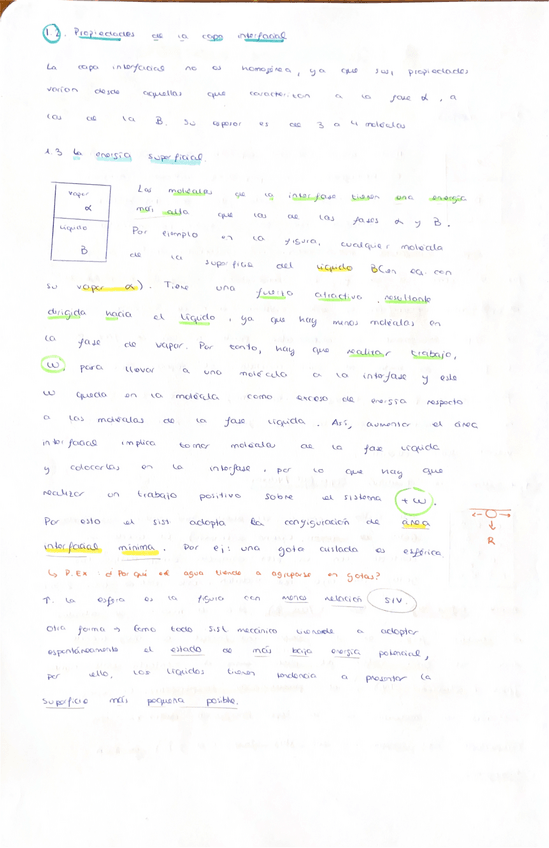 1.2. Propiedades de la capa interfacial
La capa interfacial no es homogénea, ya que sus propiedades
varían desde aquellas que caracterizan a la fase α, a
las de la B. Su espesor es de 3 a 4 moléculas
1.3 La energía superficial
vapor
α
líquido
B
Las moléculas de la interfase tienen una energía
más alta que las de las fases α y B.
Por ejemplo en la figura, cualquier molécula
de la superficie del líquido B(en eq. con
su vapor α). Tiene una fuerza atractiva, resultante
dirigida hacia el líquido, ya que hay menos moléculas en
la fase de vapor. Por tanto, hay que realizar trabajo,
W para llevar a una molécula a la interfase y este
W queda en la molécula como exceso de energía respecto
a las moléculas de la fase líquida. Así, aumentar el área
interfacial implica tomar moléculas de la fase líquida
y colocarlas en la interfase, por lo que hay que
realizar un trabajo positivo sobre el sistema (+W).
Por esto el sist adopta la configuración de área
interfacial mínima. Por ej: una gota aislada es esférica
R
↳ P.Ex ¿Por qué el agua tiende a agruparse en gotas?
la esfera es la figura con menos relación S/V.
Otra forma → Como todo sist mecánico tiende a adoptar
espontáneamente el estado de más baja energía potencial,
por ello, los líquidos tienen tendencia a presentar la
superficie más pequeña posible.